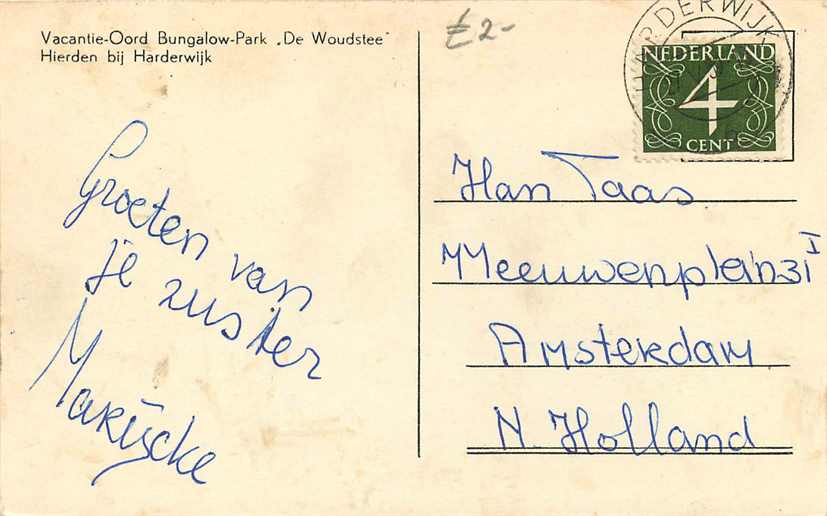 Vacantie-Oord Bungalow-Park „De Woudstee"
Hierden bij Harderwijk
£ 2-
HARDERWIJK
NEDERLAND
4
CENT
Groeten van
je zuster
Marijcke
Han Taas
Meeuwenplein 31 I
Amsterdam
N. Holland